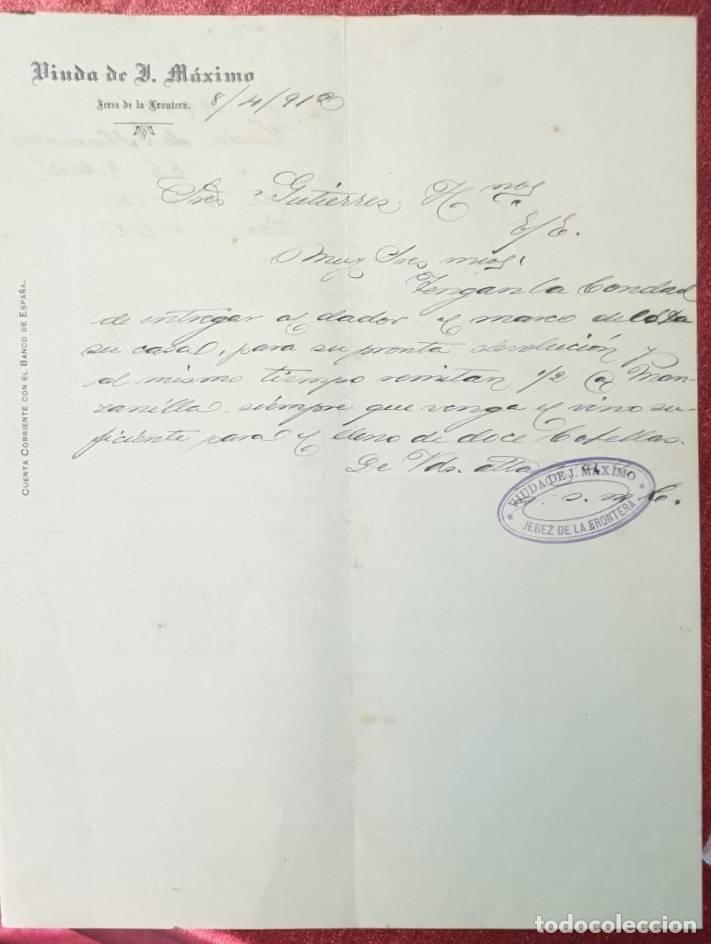 Viuda de J. Máximo
Jerez de la Frontera.
8/4/912
CUENTA CORRIENTE CON EL BANCO DE ESPAÑA.
Sres Gutierres Hnos
E/E.
Muy Sres mios:
Tengan la bondad
de entregar al dador el marco de
su casa, para su pronta devolución y
al mismo tiempo remitan 1/2 @ Man-
zanilla, siempre que venga el vino su-
ficiente para el lleno de doce botellas.
De Vds. atta
s. m. b.
VIUDA DE J. MAXIMO
JEREZ DE LA FRONTERA
todocoleccion